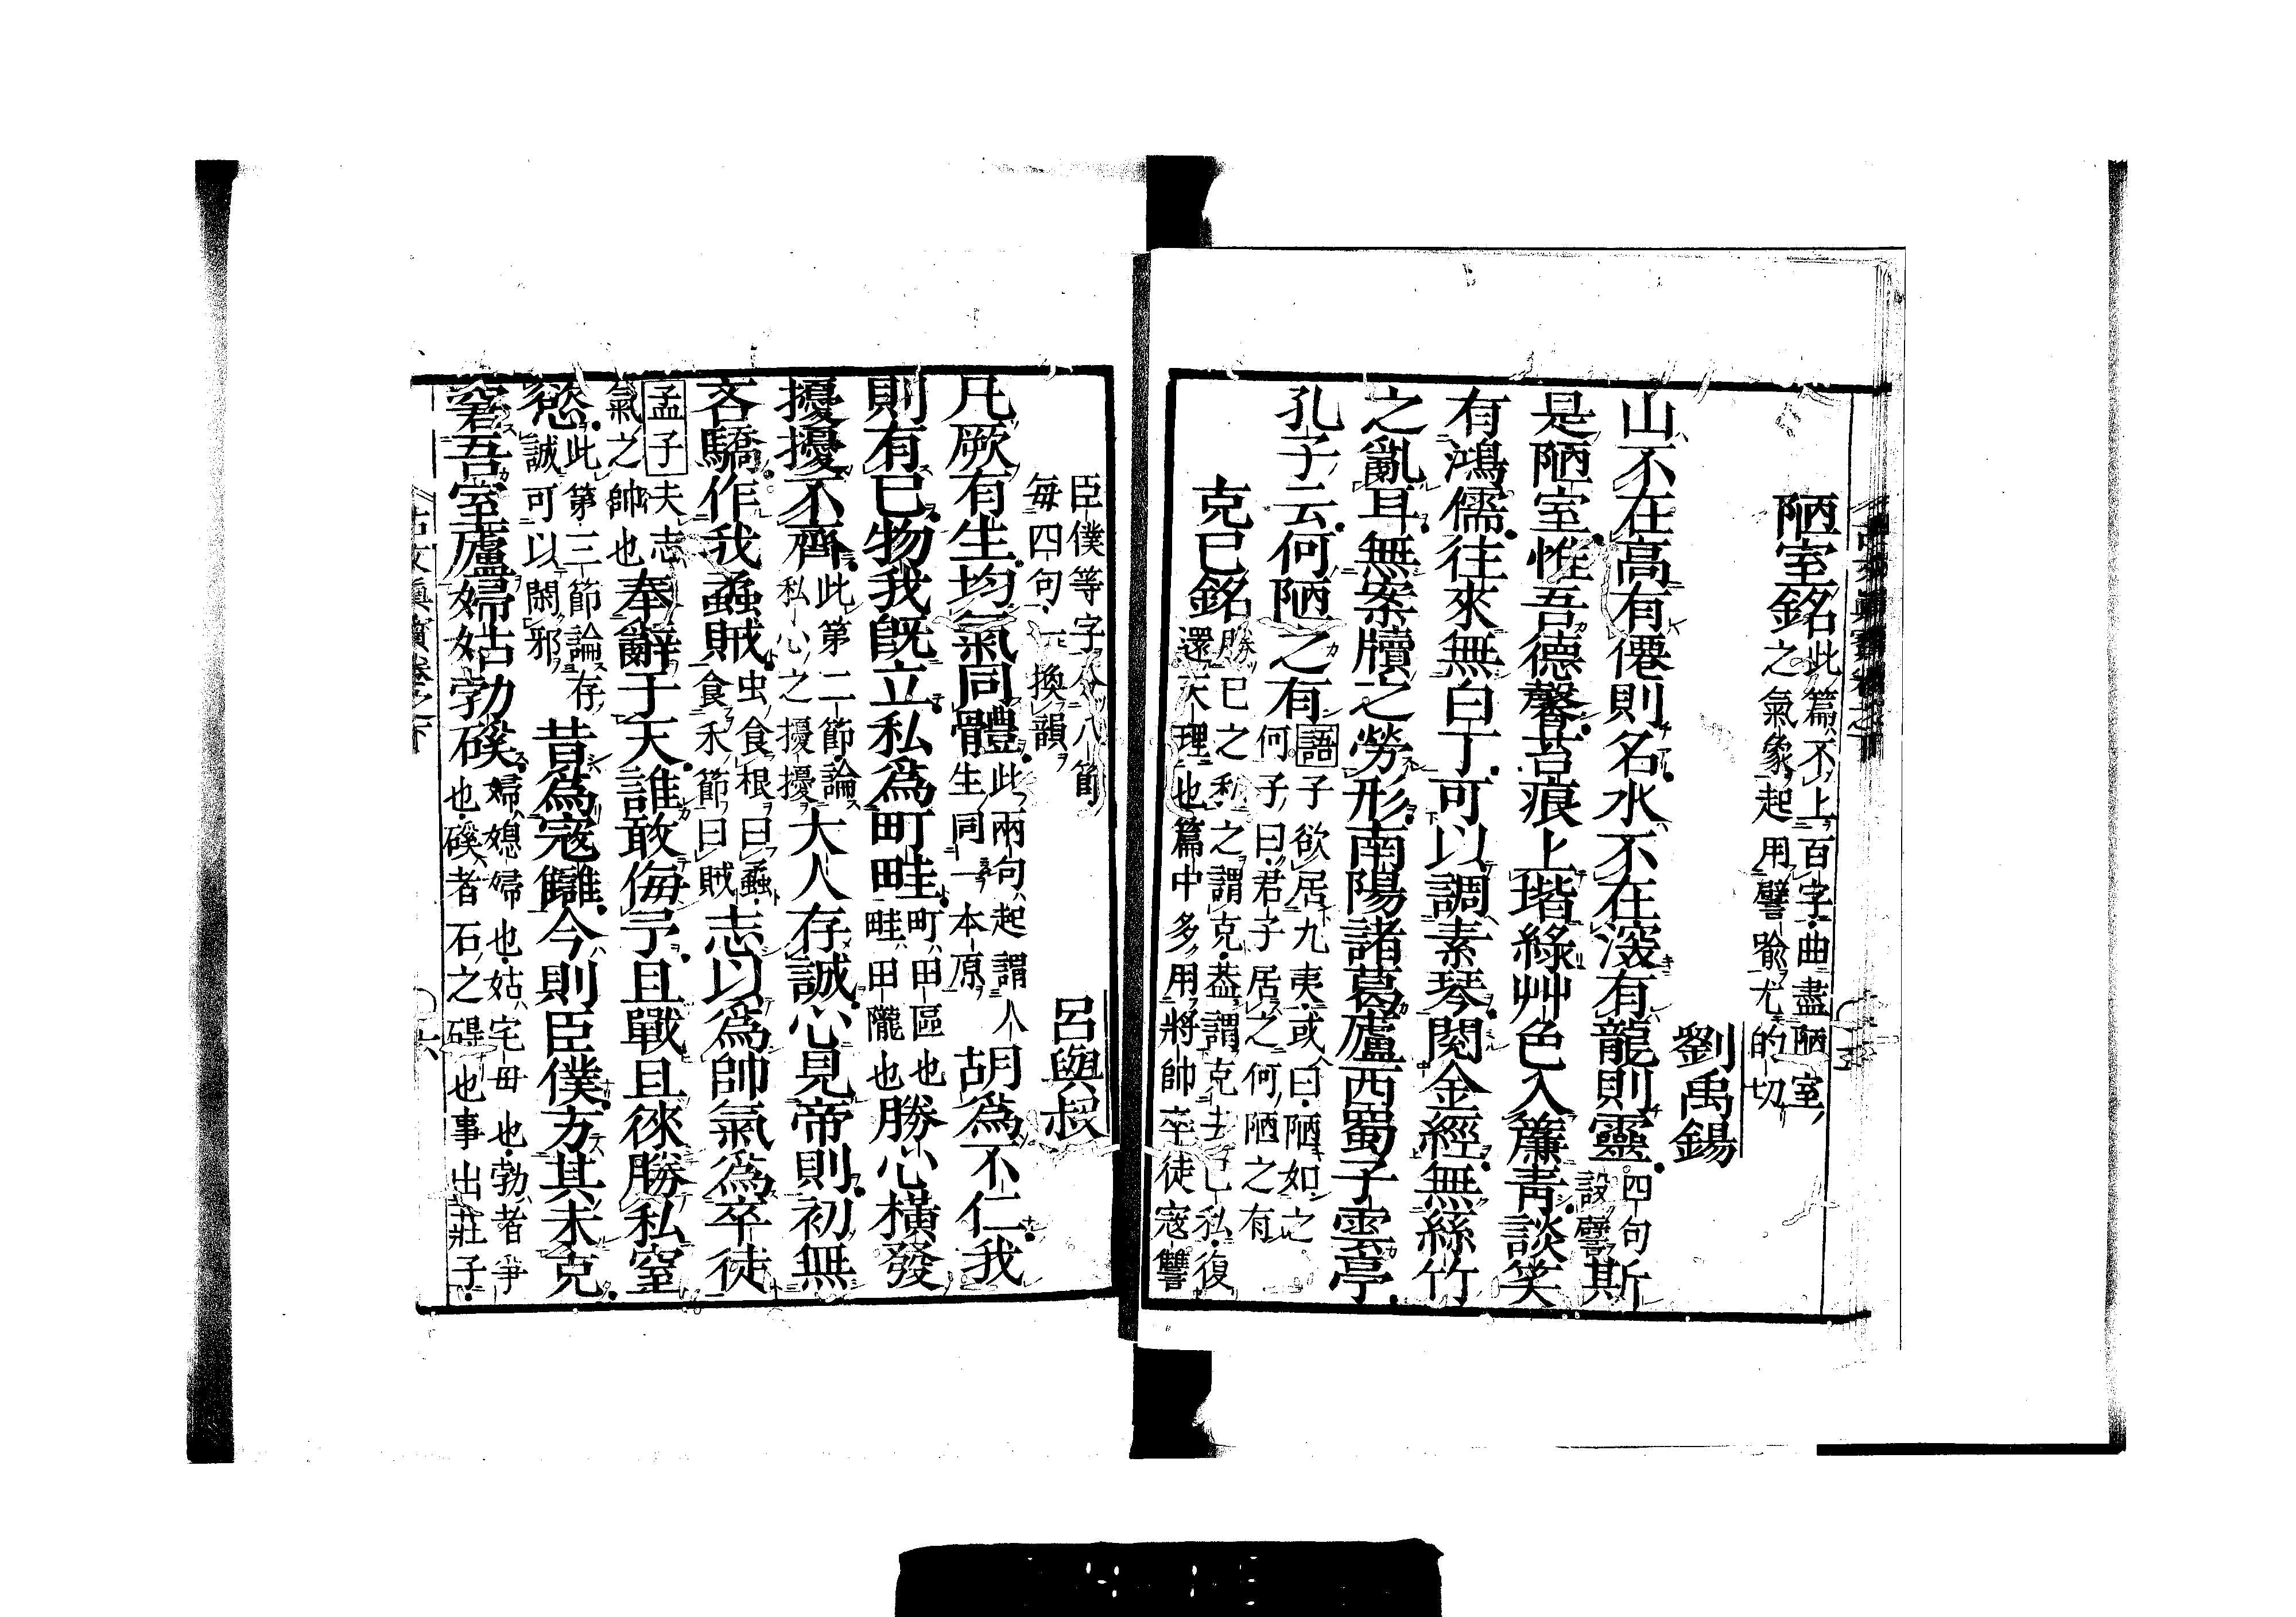 陋室銘 此篇不上百字曲盡陋室
之氣象起用譬喻尤的切
劉禹錫
山不在高有僊則名水不在深有龍則靈 四句
設譬 斯
是陋室惟吾德馨苔痕上堦綠艸色入簾靑談笑
有鴻儒往來無白丁可以調素琴閱金經無絲竹
之亂耳無案牘之勞形南陽諸葛廬西蜀子雲亭
孔子云何陋之有 語子欲居九夷或曰陋如之
何子曰君子居之何陋之有
克己銘 勝己之私之謂克葢謂克去己私復
還天理也篇中多用將帥卒徒寇讐
臣僕等字分八節
每四句一換韻
呂與叔
凡厥有生均氣同體 此兩句起謂人
生同一本原 胡爲不仁我
則有己物我旣立私爲町畦 町田區也
畦田隴也 勝心橫發
擾擾不齊 此第二節論
私心之擾擾 大人存誠心見帝則初無
吝驕作我蟊賊 虫食根曰蟊
食禾節曰賊 志以爲帥氣爲卒徒
孟子夫志
氣之帥也 奉辭于天誰敢侮予且戰且徠勝私窒
慾 此第三節論存
誠可以閑邪 昔爲寇讎今則臣僕方其未克
窘吾室廬婦姑勃磎 婦媳婦也姑宅母也勃者爭
也磎者石之碍也事出莊子